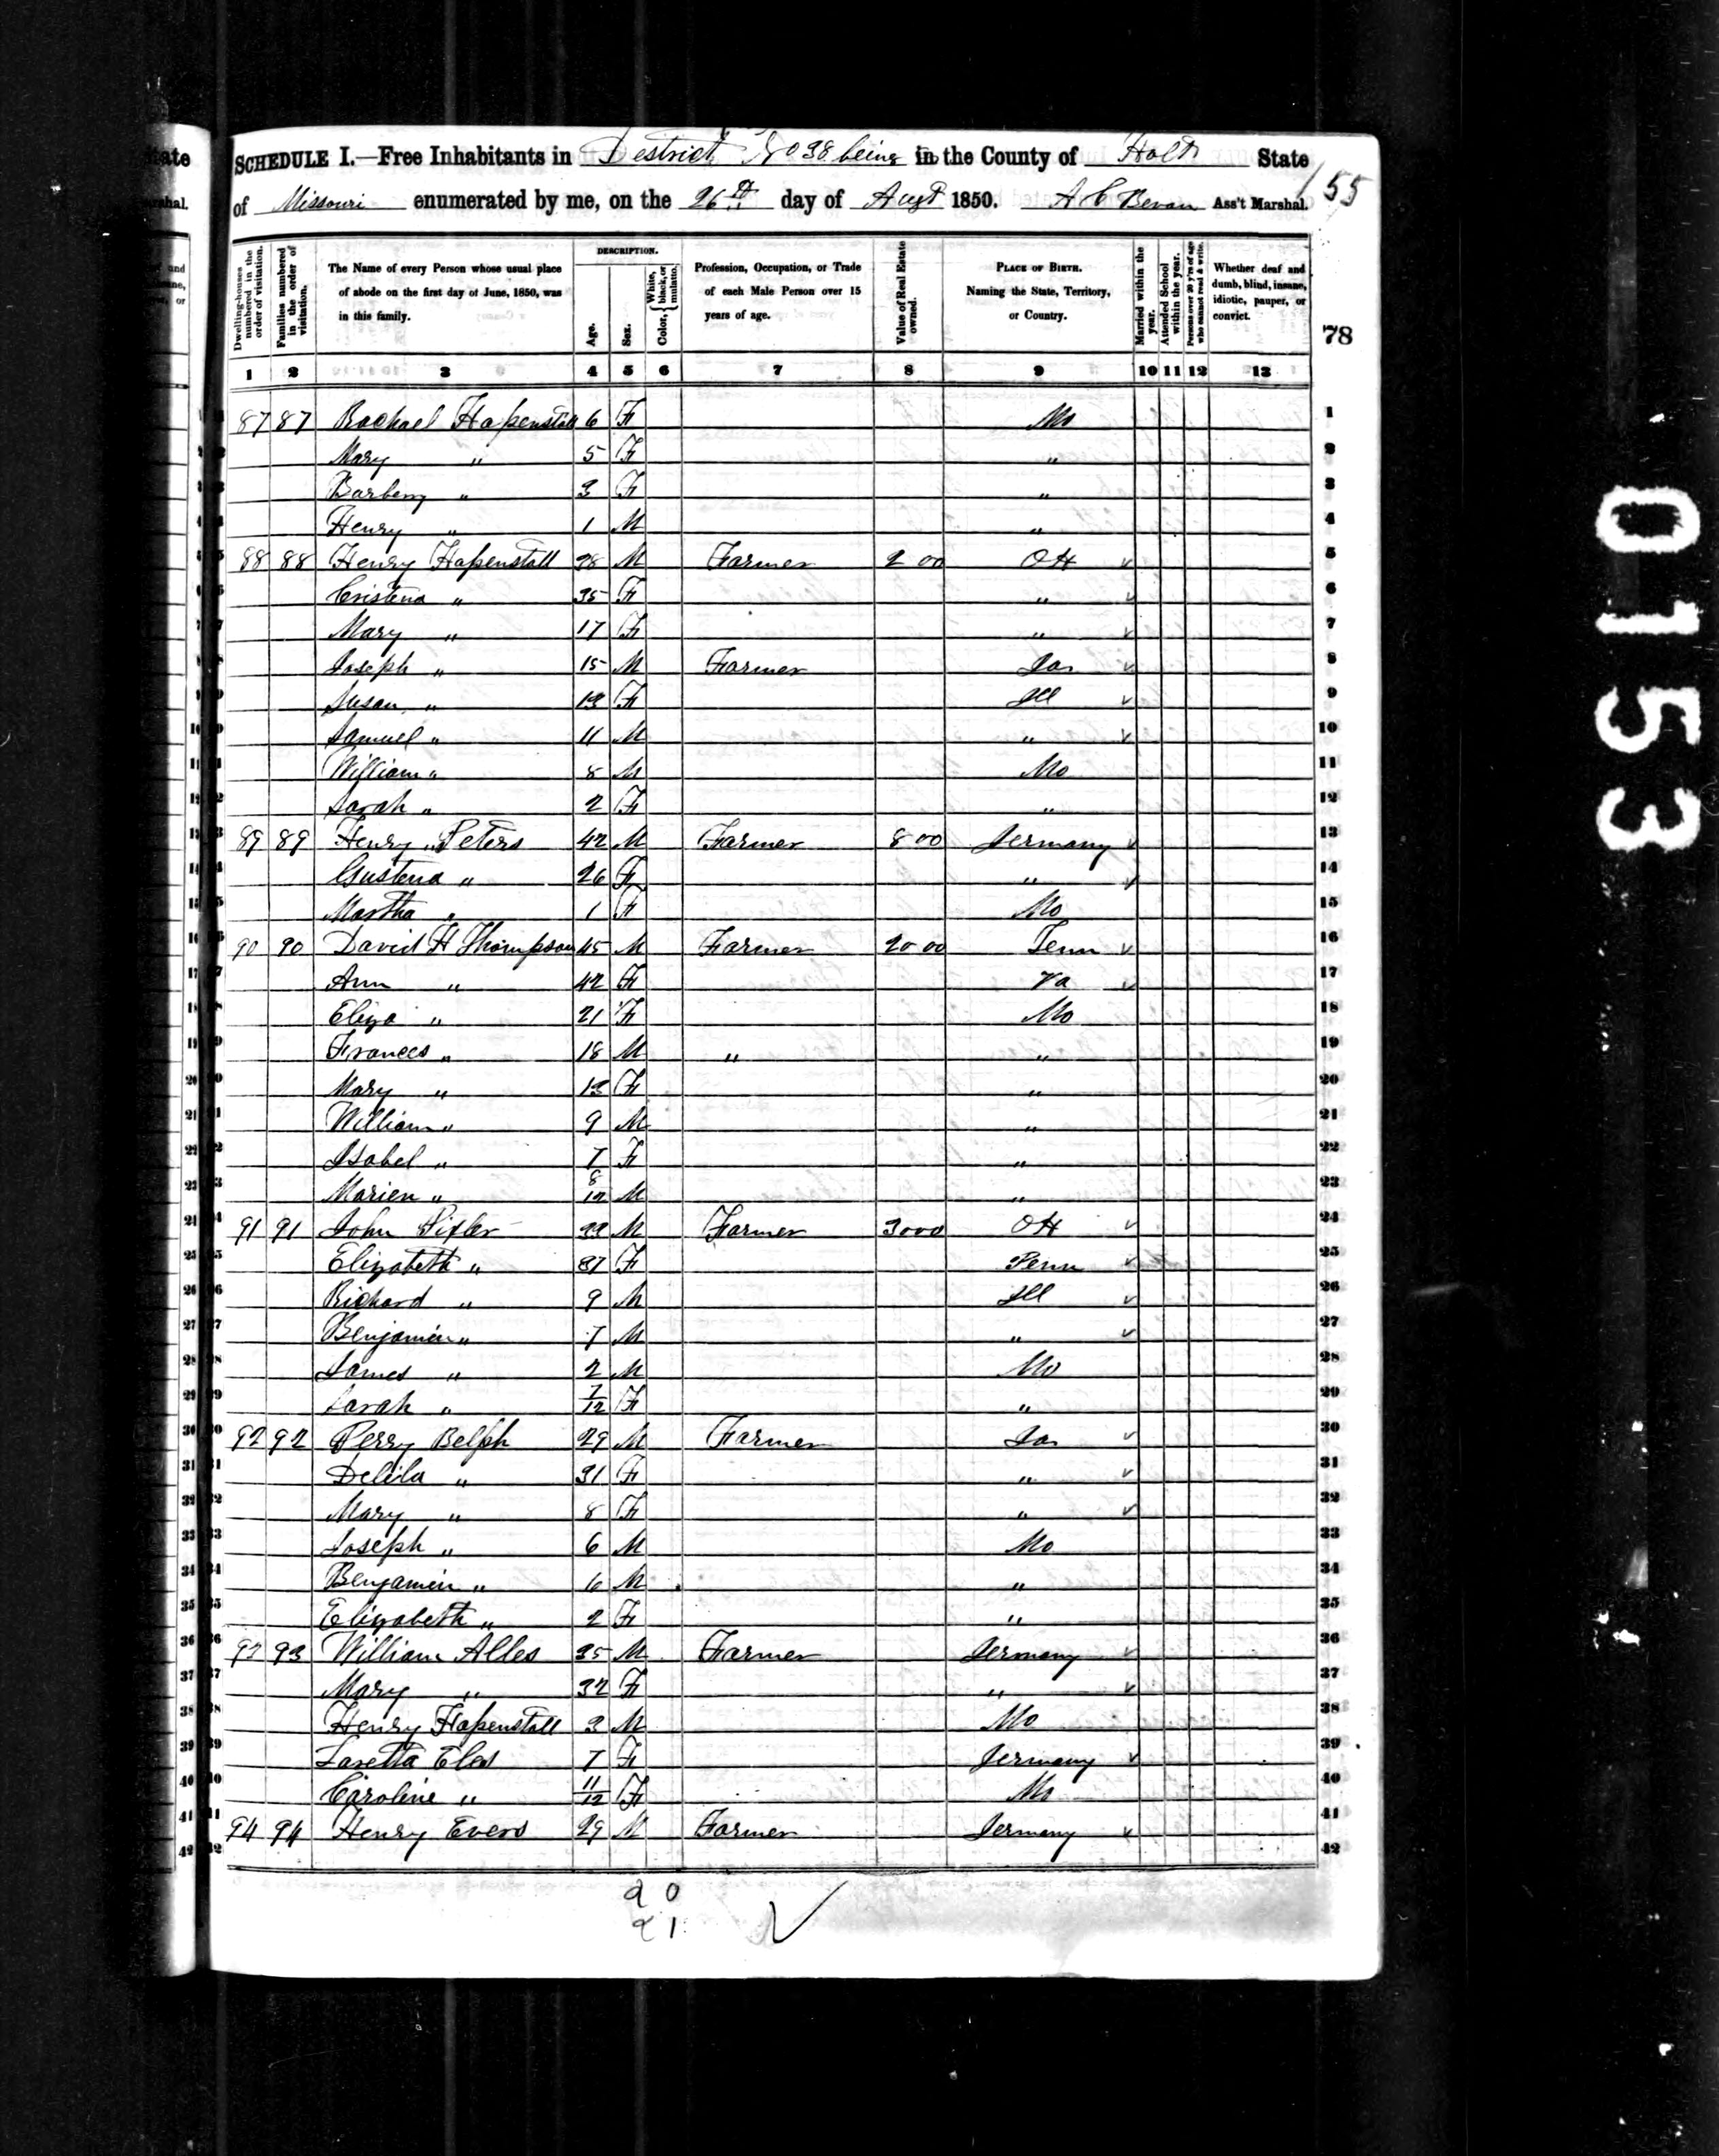 SCHEDULE I.—Free Inhabitants in District No 38 being in the County of Holt State
of Missouri enumerated by me, on the 26th day of Augt 1850. A C Bevan Ass't Marshal. 155
78
Dwelling-houses numbered in the order of visitation.
Families numbered in the order of visitation.
The Name of every Person whose usual place of abode on the first day of June, 1850, was in this family.
DESCRIPTION.
Age.
Sex.
Color, { White, black, or mulatto.
Profession, Occupation, or Trade of each Male Person over 15 years of age.
Value of Real Estate owned.
PLACE OF BIRTH. Naming the State, Territory, or Country.
Married within the year.
Attended School within the year.
Persons over 20 y'rs of age who cannot read & write.
Whether deaf and dumb, blind, insane, idiotic, pauper, or convict.
1 2 3 4 5 6 7 8 9 10 11 12 13
87 87 Rachael Hapenstall 6 F Mo 1
Mary " 5 F " 2
Barbery " 3 F " 3
Henry " 1 M " 4
88 88 Henry Hapenstall 38 M Farmer 200 OH 5
Cristena " 35 F " 6
Mary " 17 F " 7
Joseph " 15 M Farmer Ia 8
Susan " 13 F Ill 9
Samuel " 11 M " 10
William " 8 M Mo 11
Sarah " 2 F " 12
89 89 Henry Peters 42 M Farmer 800 Germany 13
Gustena " 26 F " 14
Martha " 1 F Mo 15
90 90 David H Thompson 45 M Farmer 2000 Tenn 16
Ann " 42 F Va 17
Eliza " 21 F Mo 18
Frances " 18 M " " 19
Mary " 13 F " 20
William " 9 M " 21
Isabel " 7 F " 22
Marien " 8/12 M " 23
91 91 John Sifler 33 M Farmer 3000 OH 24
Elizabeth " 37 F Penn 25
Richard " 9 M Ill 26
Benjamin " 7 M " 27
James " 2 M Mo 28
Sarah " 7/12 F " 29
92 92 Perry Belph 29 M Farmer Ia 30
Delila " 31 F " 31
Mary " 8 F " 32
Joseph " 6 M Mo 33
Benjamin " 6 M " 34
Elizabeth " 2 F " 35
93 93 William Alles 35 M Farmer Germany 36
Mary " 32 F " 37
Henry Hapenstall 3 M Mo 38
Laretta Eles 7 F Germany 39
Caroline " 11/12 F Mo 40
94 94 Henry Evers 29 M Farmer Germany 41
42
20
21
0153